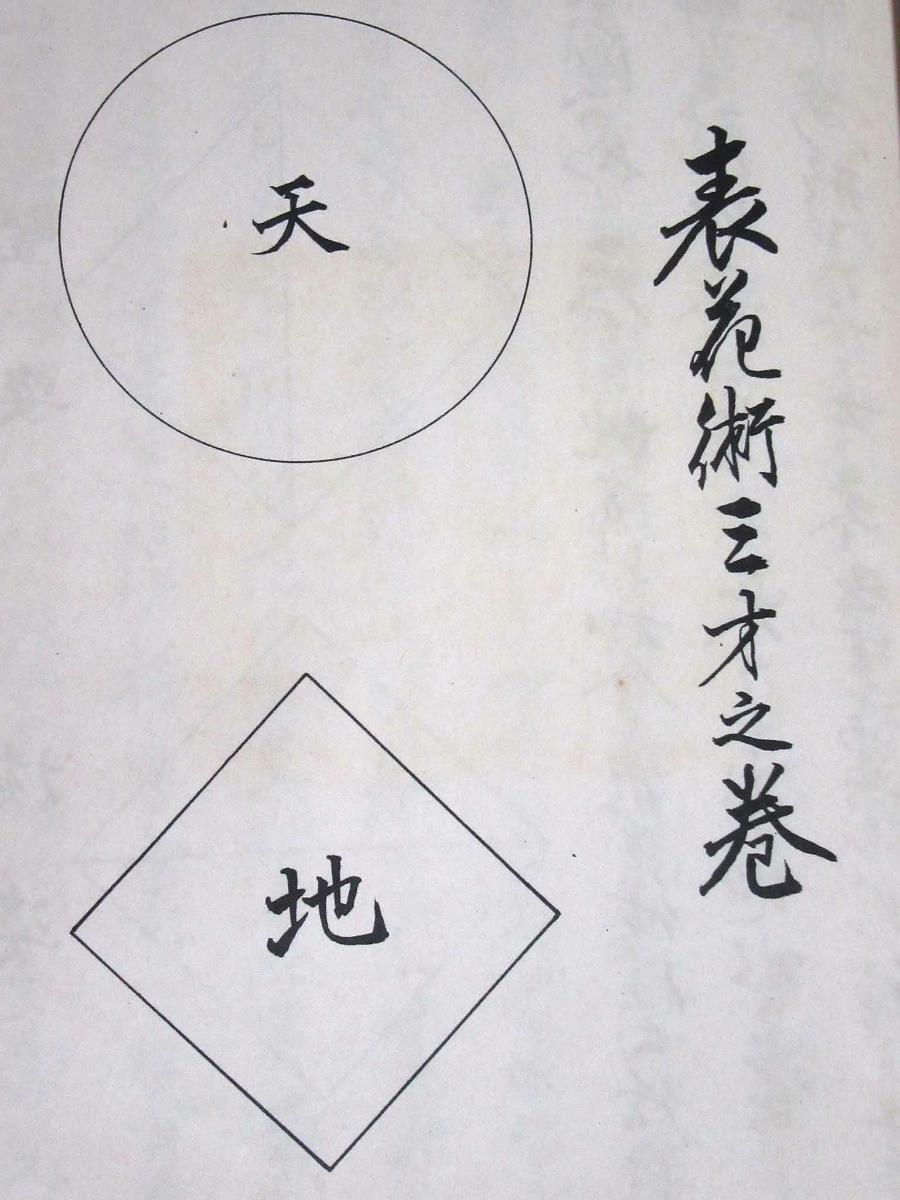 表花術三才之巻
天
地